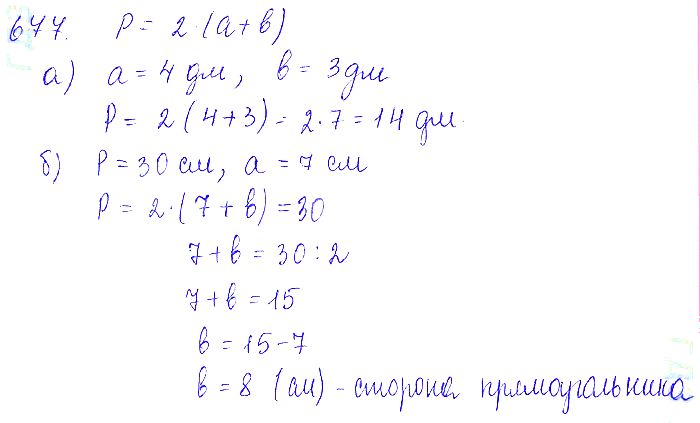 677. P = 2·(a+b)
а) a = 4 дм, b = 3 дм
P = 2(4+3) = 2·7 = 14 дм.
б) P = 30 см, a = 7 см
P = 2·(7+b) = 30
7+b = 30:2
7+b = 15
b = 15-7
b = 8 (см) - сторона прямоугольника